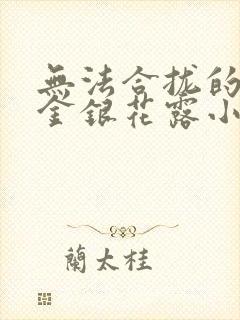 無法合拢的
金銀花露小
蘭太桂